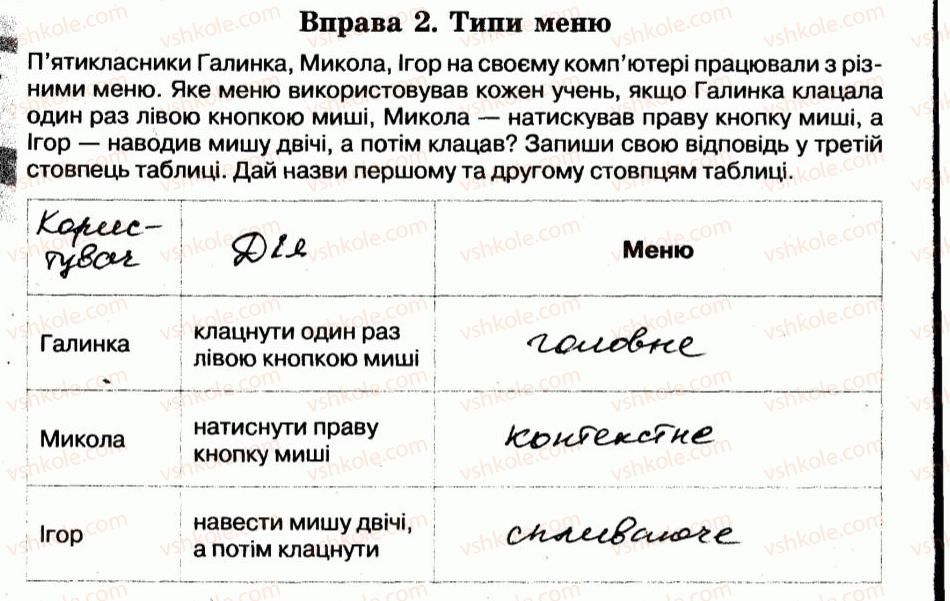 Вправа 2. Типи меню
П'ятикласники Галинка, Микола, Ігор на своєму комп'ютері працювали з різ-
ними меню. Яке меню використовував кожен учень, якщо Галинка клацала
один раз лівою кнопкою миші, Микола — натискував праву кнопку миші, а
Ігор — наводив мишу двічі, а потім клацав? Запиши свою відповідь у третій
стовпець таблиці. Дай назви першому та другому стовпцям таблиці.
Корис-
тувач
Дія
Меню
Галинка
клацнути один раз
лівою кнопкою миші
головне
Микола
натиснути праву
кнопку миші
контекстне
Ігор
навести мишу двічі,
а потім клацнути
спливаюче
vshkole.com